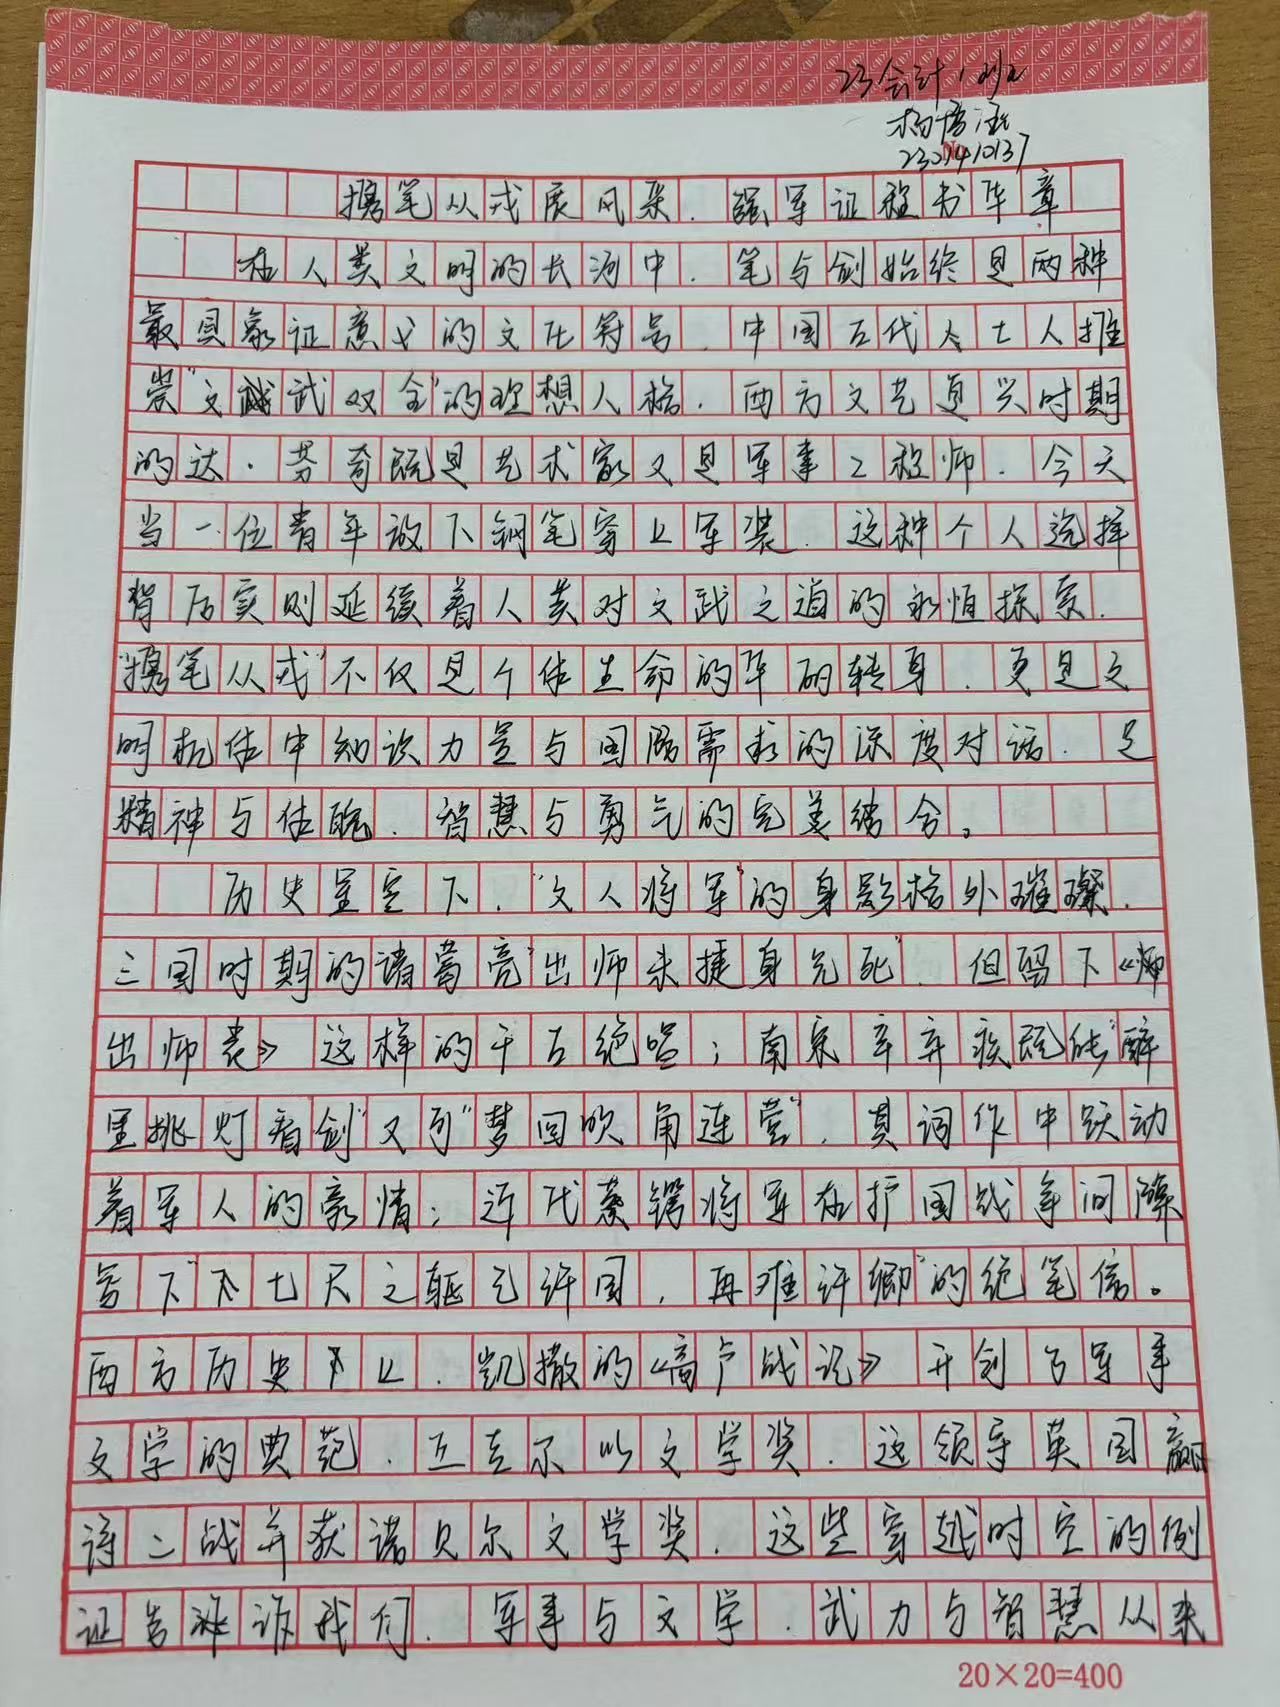 23会计1班
2301410137
携笔从戎展风采,强军征程书华章
在人类文明的长河中,笔与剑始终是两种
最具象征意义的文化符号,中国古代士人推
崇"文武双全"的理想人格,西方文艺复兴时期
的达·芬奇既是艺术家又是军事工程师,今天
当一位青年放下钢笔穿上军装,这种个人选择
背后实则延续着人类对文武之道的永恒探索,
"携笔从戎"不仅是个体生命的华丽转身,更是文
明机体中知识力量与国防需求的深度对话,是
精神与体魄,智慧与勇气的完美结合。
历史星空下,"文人将军"的身影格外璀璨,
三国时期的诸葛亮"出师未捷身先死",但留下《
出师表》这样的千古绝唱;南宋辛弃疾既能"醉
里挑灯看剑"又可"梦回吹角连营",其词作中跃动
着军人的豪情;近代蔡锷将军在护国战争间隙
写下"七尺之躯已许国,再难许卿"的绝笔信。
西方历史上,凯撒的《高卢战记》开创了军事
文学的典范,丘吉尔以文学奖,这领导英国赢
得二战并获诺贝尔文学奖,这些穿越时空的例
证告诉我们,军事与文学,武力与智慧从来
20×20=400